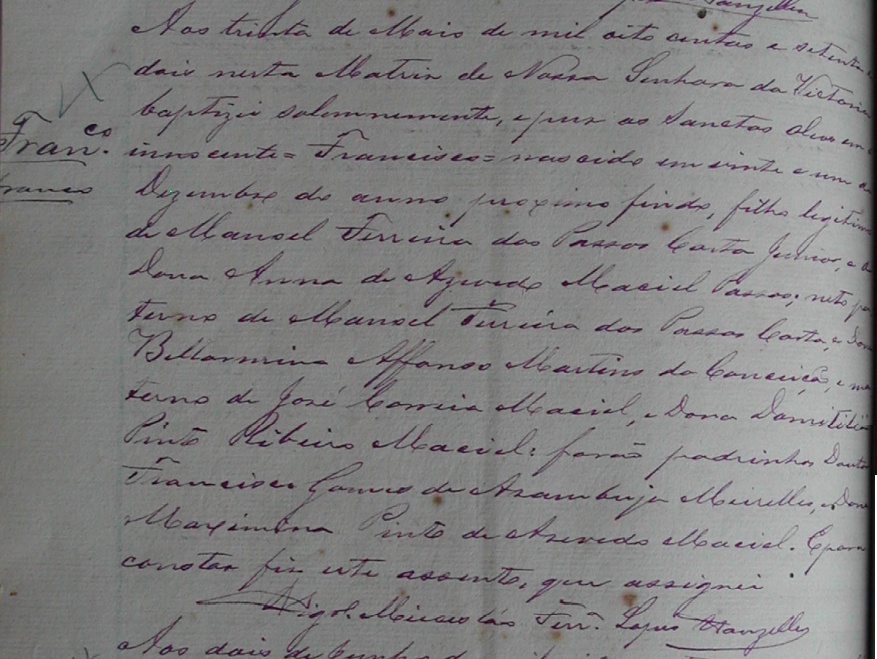 Aos trinta de Maio de mil oito centos e setenta e
dois nesta Matriz de Nossa Senhora da Victoria
baptizei solemnemente, e puz os Sanctos oleos em o
Franco. innocente = Francisco = nascido em vinte e um
branco Dezembro do anno proximo findo, filho legitimo
de Manoel Ferreira dos Passos Costa Junior, e
Dona Anna de Azevedo Maciel Passos; neto pa
terno de Manoel Ferreira dos Passos Costa, e Dona
Bellarmina Affonso Martins da Conceição, e ma
terno de José Correia Maciel, e Dona Domitilia
Pinto Ribeiro Maciel: forão padrinhos Doutor
Francisco Gomes de Asambuja Meirelles, e Dona
Maximina Pinto de Azevedo Maciel. E para
constar fiz este assento, que assignei
Vigro. Ferra. Lopes
Aos dois de Junho de